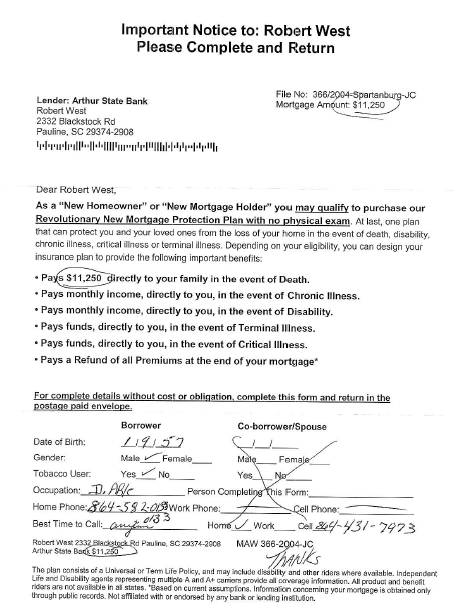 Important Notice to: Robert West
Please Complete and Return
File No: 366/2004-Spartanburg-JC
Mortgage Amount: $11,250
Lender: Arthur State Bank
Robert West
2332 Blackstock Rd
Pauline, SC 29374-2908
Dear Robert West,
As a "New Homeowner" or "New Mortgage Holder" you may qualify to purchase our
Revolutionary New Mortgage Protection Plan with no physical exam. At last, one plan
that can protect you and your loved ones from the loss of your home in the event of death, disability,
chronic illness, critical illness or terminal illness. Depending on your eligibility, you can design your
insurance plan to provide the following important benefits:
• Pays $11,250 directly to your family in the event of Death.
• Pays monthly income, directly to you, in the event of Chronic Illness.
• Pays monthly income, directly to you, in the event of Disability.
• Pays funds, directly to you, in the event of Terminal Illness.
• Pays funds, directly to you, in the event of Critical Illness.
• Pays a Refund of all Premiums at the end of your mortgage*
For complete details without cost or obligation, complete this form and return in the
postage paid envelope.
Borrower Co-borrower/Spouse
Date of Birth:
Gender: Male ✓ Female Male Female
Tobacco User: Yes ✓ No Yes No
Occupation: Person Completing This Form:
Home Phone: 864-582- Work Phone: Cell Phone:
Best Time to Call: 0133 Home ✓ Work Cell 864-431-7973
Robert West 2332 Blackstock Rd Pauline, SC 29374-2908 MAW 366-2004-JC
Arthur State Bank $11,250
THANKS
The plan consists of a Universal or Term Life Policy, and may include disability and other riders where available. Independent
Life and Disability agents representing multiple A and A+ carriers provide all coverage information. All product and benefit
riders are not available in all states. *Based on current assumptions. Information concerning your mortgage is obtained only
through public records. Not affiliated with or endorsed by any bank or lending institution.